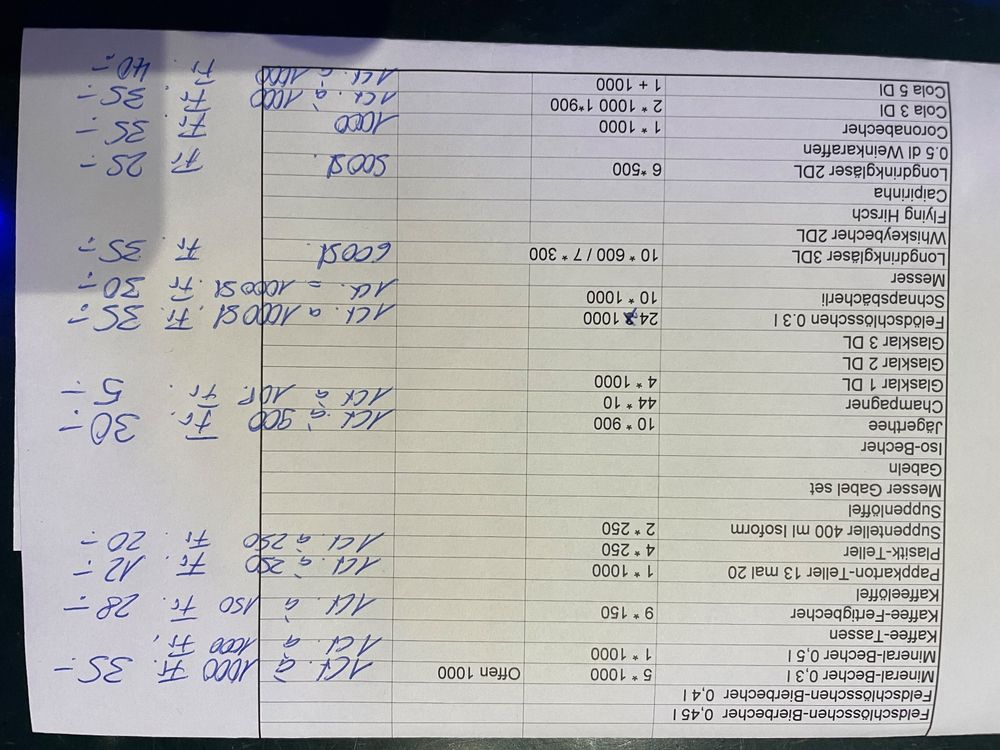 Feldschlösschen-Bierbecher 0,45 l
Feldschlösschen-Bierbecher 0,4 l
Mineral-Becher 0,3 l 5 * 1000 Offen 1000 1Ct. à 1000 Fr. 35.-
Mineral-Becher 0,5 l 1 * 1000 1Ct. à 1000 Fr.
Kaffee-Tassen
Kaffee-Fertigbecher 9 * 150 1Ct. à 150 Fr. 28.-
Kaffeelöffel
Pappkarton-Teller 13 mal 20 1 * 1000
Plasitk-Teller 4 * 250 1Ct. à 250 Fr. 12.-
Suppenteller 400 ml Isoform 2 * 250 1Ct. à 250 Fr. 20.-
Suppenlöffel
Messer Gabel set
Gabeln
Iso-Becher
Jägerthee 10 * 900 1Ct. à 900 Fr. 30.-
Champagner 44 * 10 1Ct. à 10P. Fr. 5.-
Glasklar 1 DL 4 * 1000
Glasklar 2 DL
Glasklar 3 DL
Felödschlösschen 0.3 l 24 * 1000 1Ct. a 1000St. Fr. 35.-
Schnapsbächerli 10 * 1000 1Ct. = 1000St. Fr. 30.-
Messer
Longdrinkgläser 3DL 10 * 600 / 7 * 300 600St. Fr. 35.-
Whiskeybecher 2DL
Flying Hirsch
Caipirinha
Longdrinkgläser 2DL 6 *500 500St. Fr. 25.-
0.5 dl Weinkaraffen
Coronabecher 1 * 1000 1000 Fr. 35.-
Cola 3 Dl 2 * 1000 1*900 1Ct. à 1000 Fr. 35.-
Cola 5 Dl 1 + 1000 1Ct. à 1000 Fr. 40.-